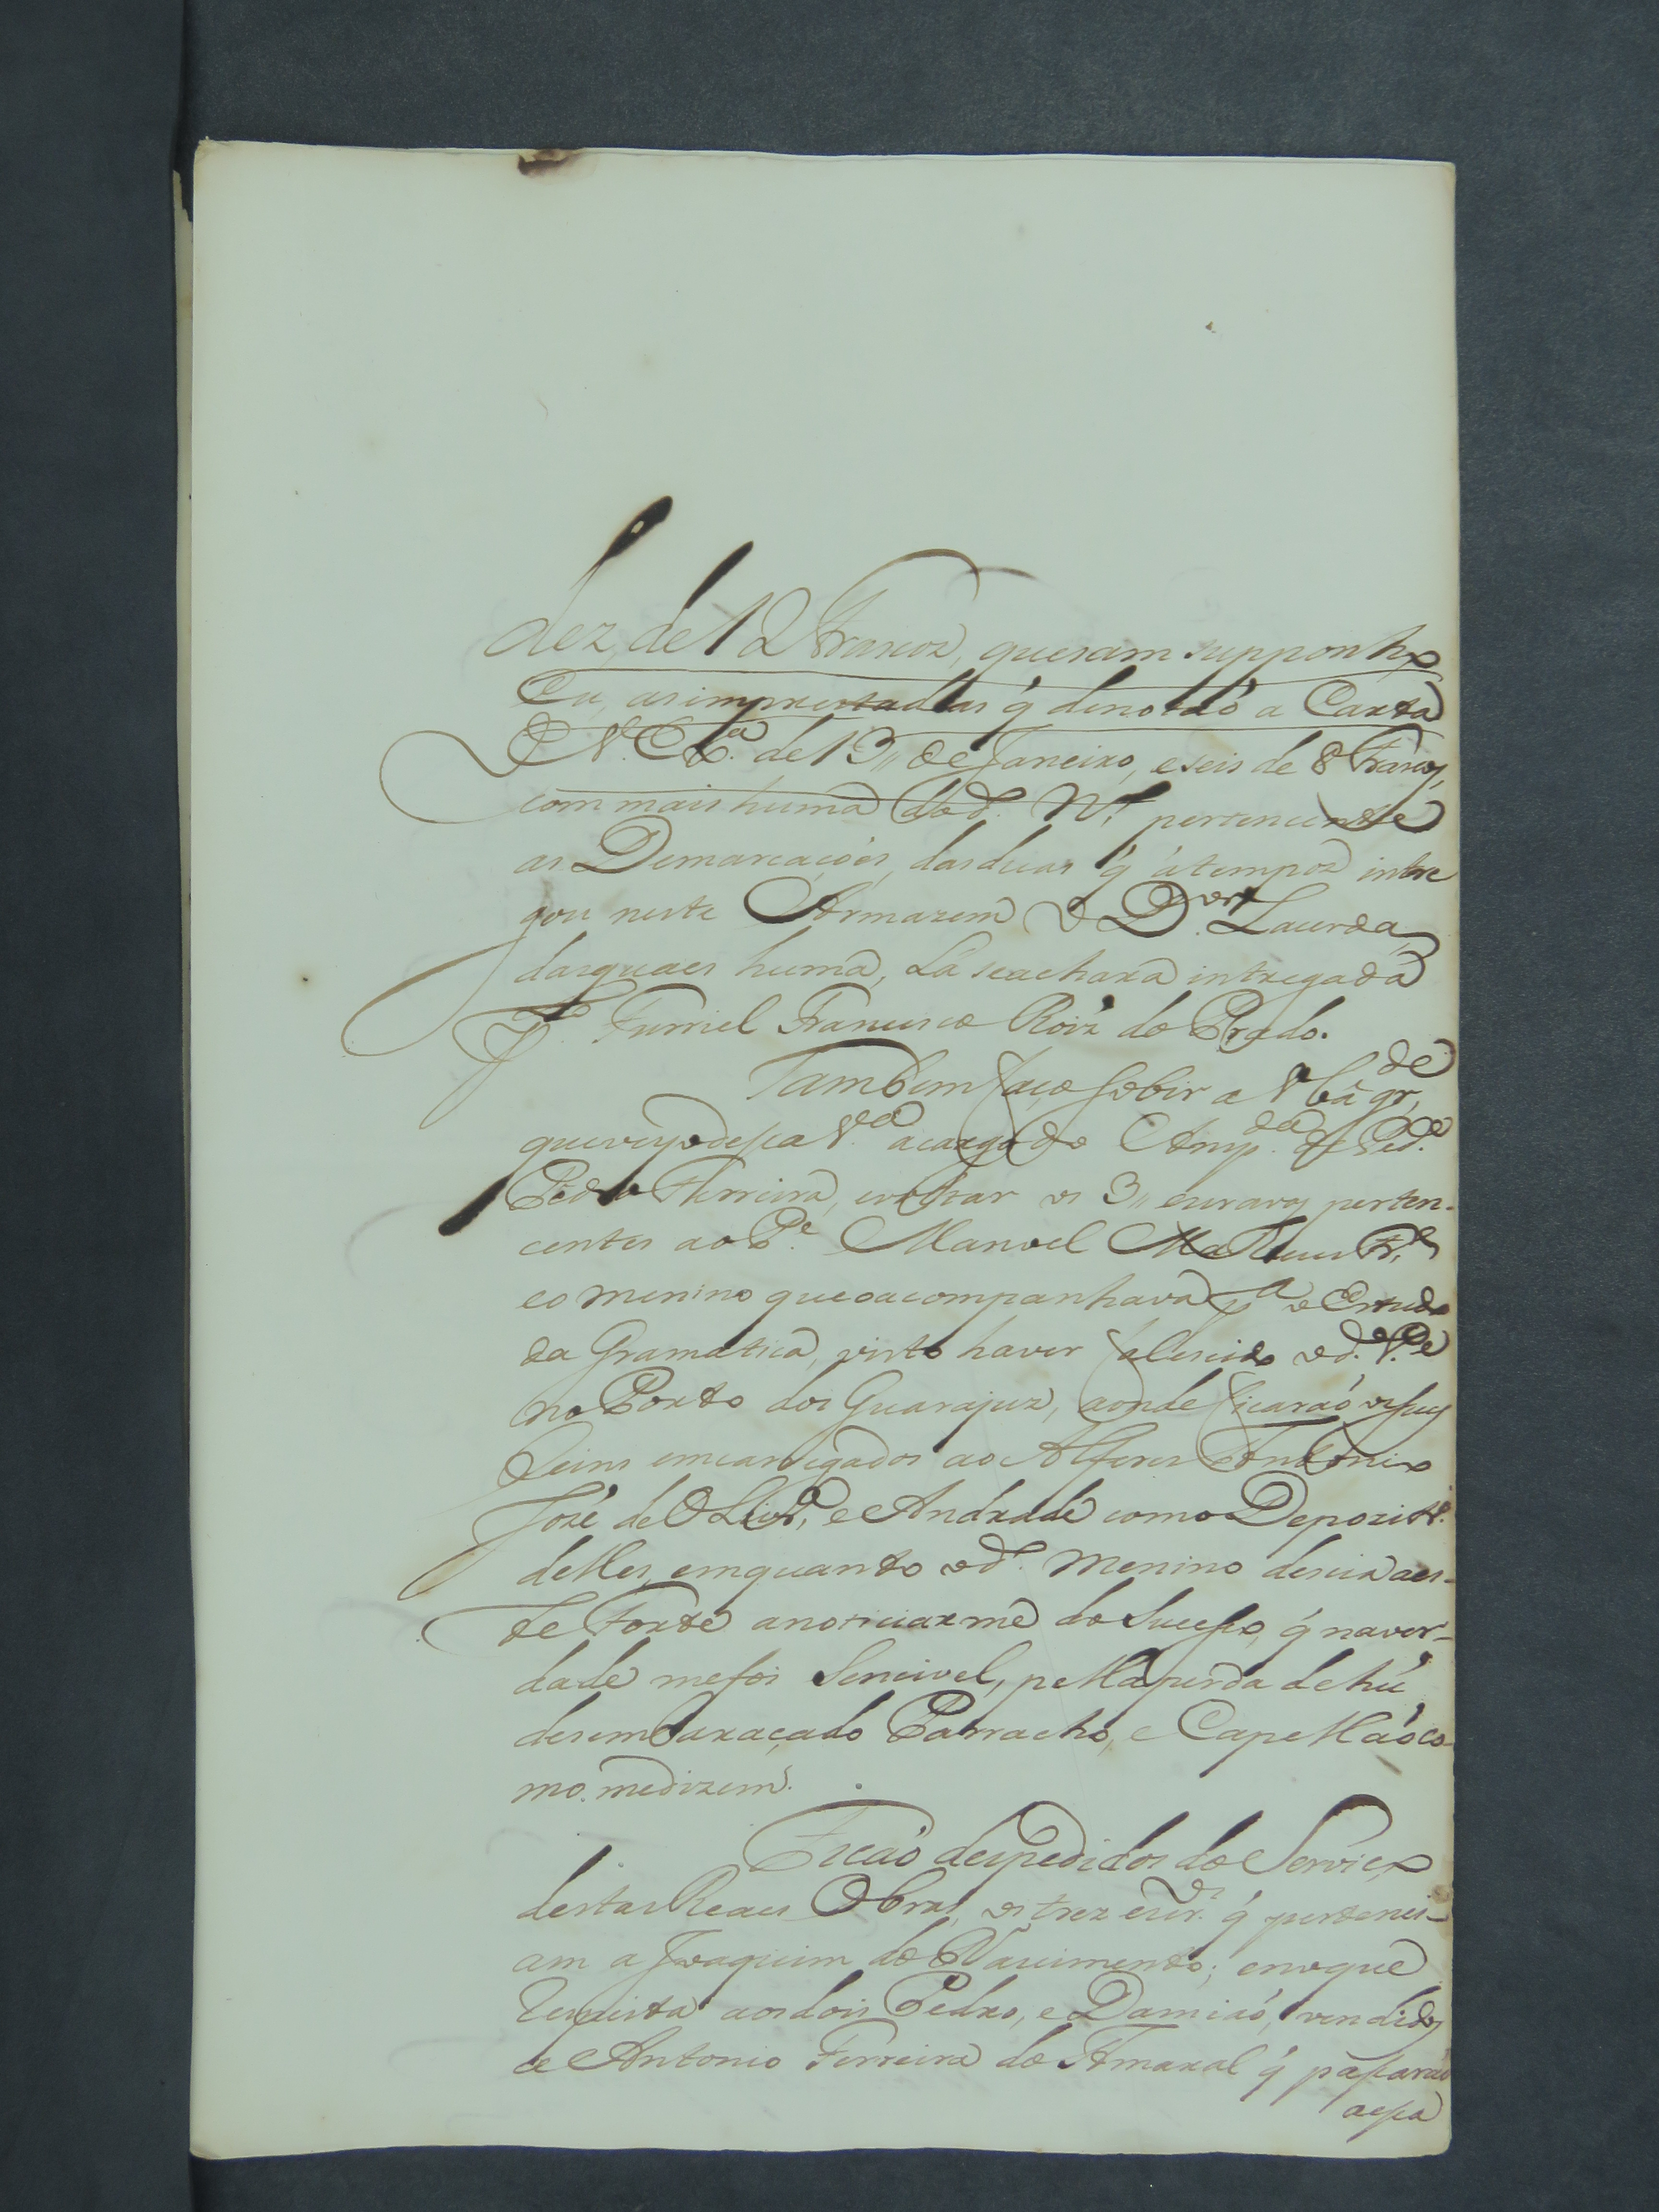 dez, de 12 Frascoz, queram supponho
Eu, as imprestadas q̃ denotaó a Carta
D V. Ex.ª de 13,, de Janeiro, e seis de 8 Frascoz,
com mais huma do d.º N.º pertencente
as Demarcaçóes, das duas q̃ á tempoz intre
gou neste Armazem o D.or Lacerda,
das quaes huma, Lá se achará intregada
P.lo Furriel Francisco Roiz do Prado.
Tambem faço sobir a Ygã gr.de
que veyo dessa V.ª a cargo do Anp.da de Ped.º
Pedro Ferreira, e voltar os 3,, escravoz perten-
centes ao P.e Manoel Matheus Fr.ª
e o menino que o acompanhava p.ª o Estudo
da Gramatica, visto haver falescido o d.º P.e
no Porto dos Guarajuz, aonde ficaraó os seuz
beins emcarregados ao Alferes Antonio
José de Oliv.ª, e Andrade como Deposit.º
delles, emquanto o d.º menino descia a es-
te Forte a noticiar me do Sucesso, q̃ na ver-
dade me foi Sencivel, pella perda de hú
desembaraçado Parracho, e Capellaó co-
mo me dizem.
Ficaó despedidos do Serviço
destas Reaes Obras, os trez escr.os q̃ pertenci-
am a Joaquim do Nascimento; e no que
respeita aos dois Pedro, e Damiaó, vendidoz
a Antonio Ferreira do Amaral q̃ passaraó
a essa